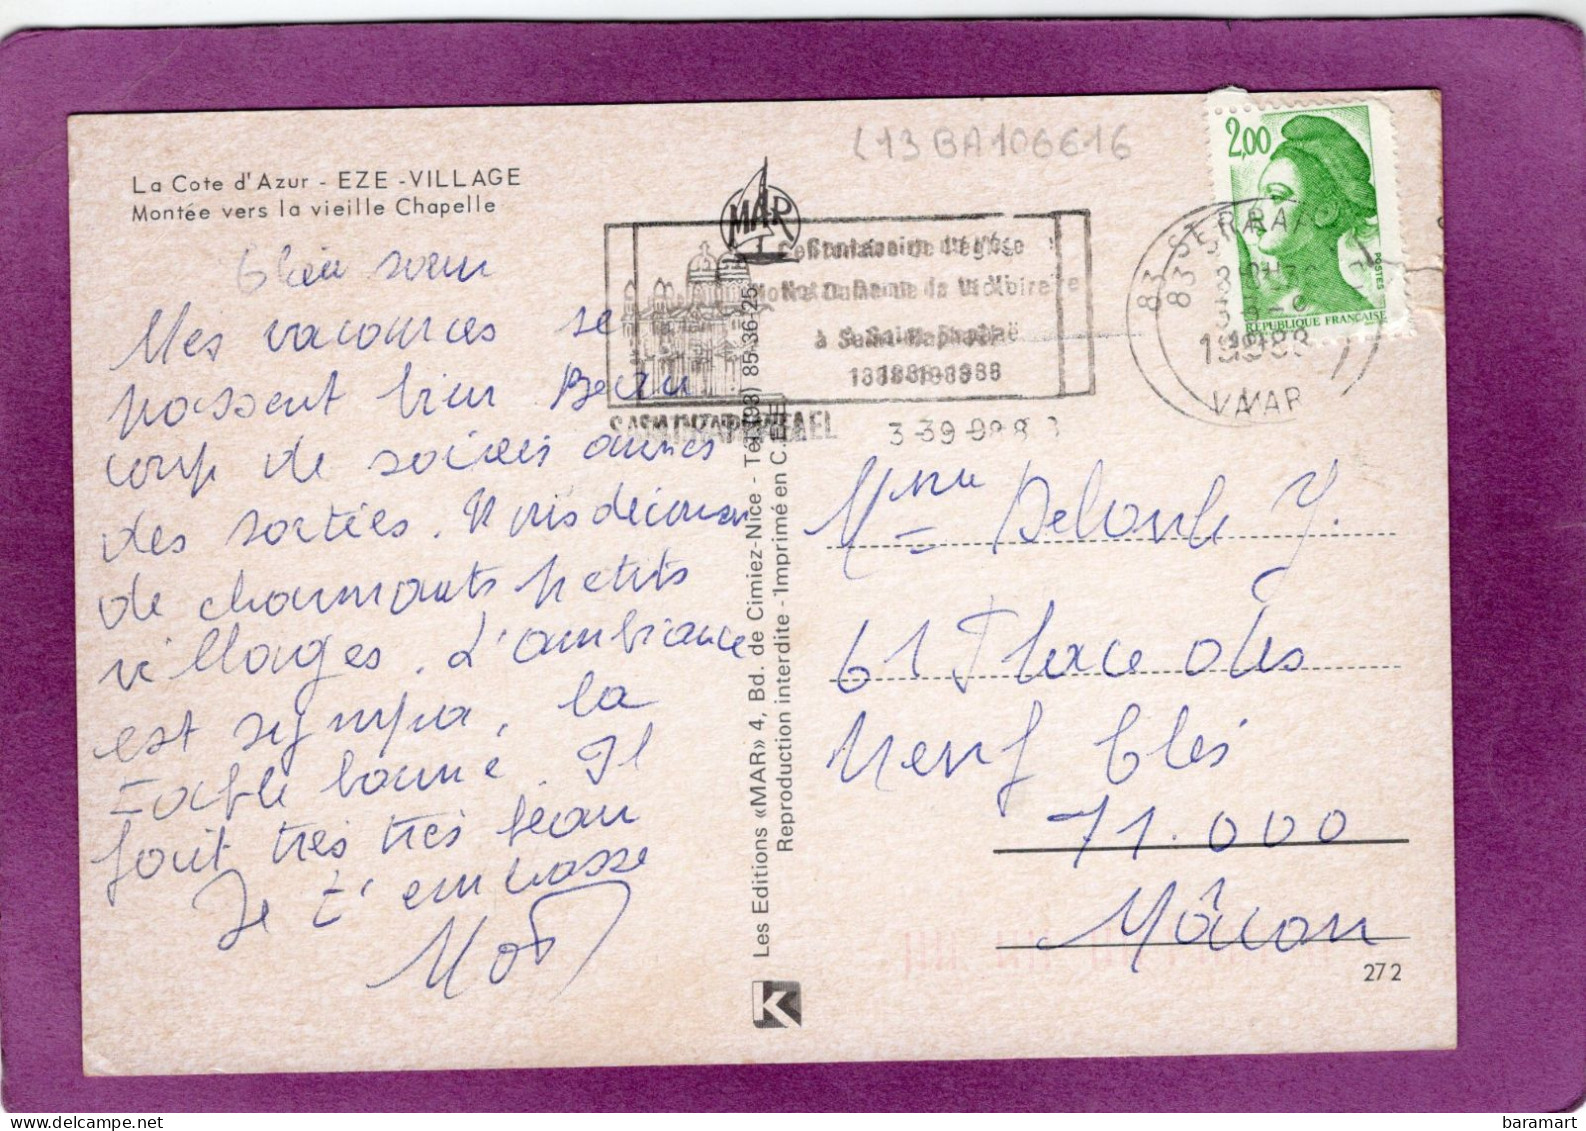 La Cote d'Azur - EZE - VILLAGE
Montée vers la vieille Chapelle
L13BA106616
MAR
2,00
POSTES
REPUBLIQUE FRANÇAISE
83 ST RAPHAEL
1988
VAR
Centenaire de l'église
Notre Dame de la Victoire
à Saint Raphaël
1888-1988
SAINT RAPHAEL
3-9-88
sœur
Mes vacances se
passent bien Beau
coup de soirées
des sorties. Nous
de charmants petits
villages. L'ambiance
est sympa, la
table bonne. Il
fait très très beau
Je t'embrasse
Mme
61 Place des
neuf clés
71.000
Mâcon
Les Editions «MAR» 4, Bd. de Cimiez-Nice - Tél. (93) 85-36-25
Reproduction interdite - Imprimé en C.E.E.
K
272
baramart